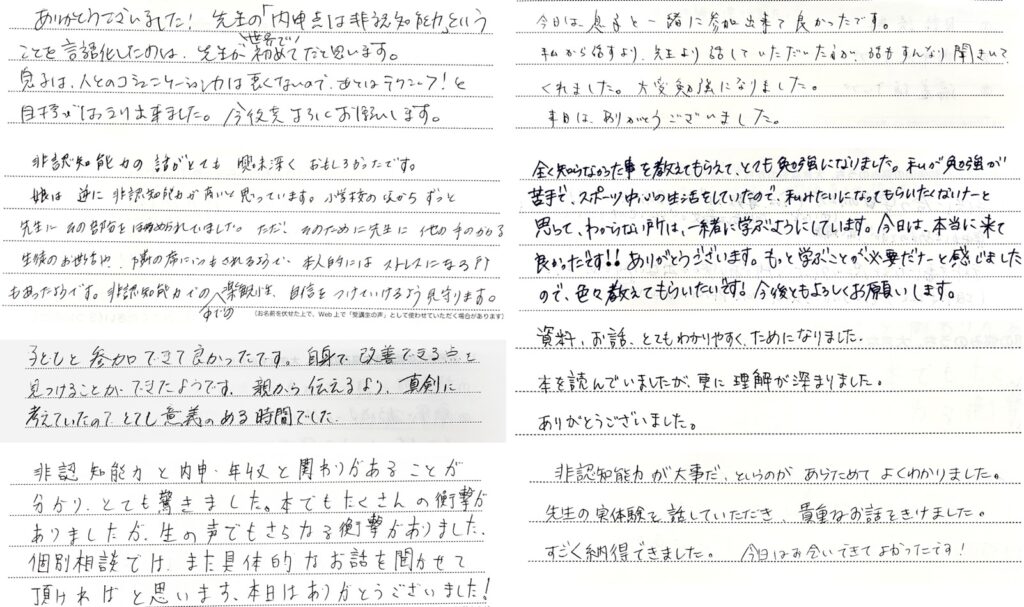 ありがとうございました！先生の「内申点は非認知能力」という
ことを言語化したのは、先生が世界で！初めてだと思います。
息子は、人とのコミュニケーション力は悪くないので、あとはテクニック！と
目標がはっきり出来ました。今後共よろしくお願いします。
非認知能力の話がとても興味深くおもしろかったです。
娘は逆に非認知能力が高いと思っています。小学校の頃からずっと
先生にその部分をほめられていました。ただ、そのために先生に他の手のかかる
生徒のお世話や、隣の席にいつもされるようで、本人的にはストレスになる所
もあったようです。非認知能力での楽観性、自信をつけていけるよう見守ります。
までの
（お名前を伏せた上で、Web上で「受講生の声」として使わせていただく場合があります）
子どもと参加できて良かったです。自身で改善できる点を
見つけることができたようです。親から伝えるより、真剣に
考えていたのでとても意義のある時間でした
非認知能力と内申・年収と関わりがあることが
分かり、とても驚きました。本でもたくさんの衝撃が
ありましたが、生の声でもさらなる衝撃がありました。
個別相談では、また具体的なお話を聞かせて
頂ければと思います、本日はありがとうございました！
今日は、息子と一緒に参加出来て良かったです。
私から話すより、先生より話していただいた方が、話もすんなり聞きいて
くれました。大変勉強になりました。
本日は、ありがとうございました。
全く知らなかった事を教えてもらえて、とても勉強になりました。私が勉強が
苦手で、スポーツ中心の生活をしていたので、私みたいになってもらいたくないナーと
思って、わからない所は、一緒に学ぶようにしています。今日は、本当に来て
良かったです!!ありがとうございます。もっと学ぶことが必要だナーと感じました
ので、色々教えてもらいたいです!今後ともよろしくお願いします。
資料、お話、とてもわかりやすく、ためになりました。
本を読んでいましたが、更に理解が深まりました。
ありがとうございました。
非認知能力が大事だ、というのがあらためてよくわかりました。
先生の実体験を話していただき、貴重なお話をきけました。
すごく納得できました。今日はお会いできてよかったです！